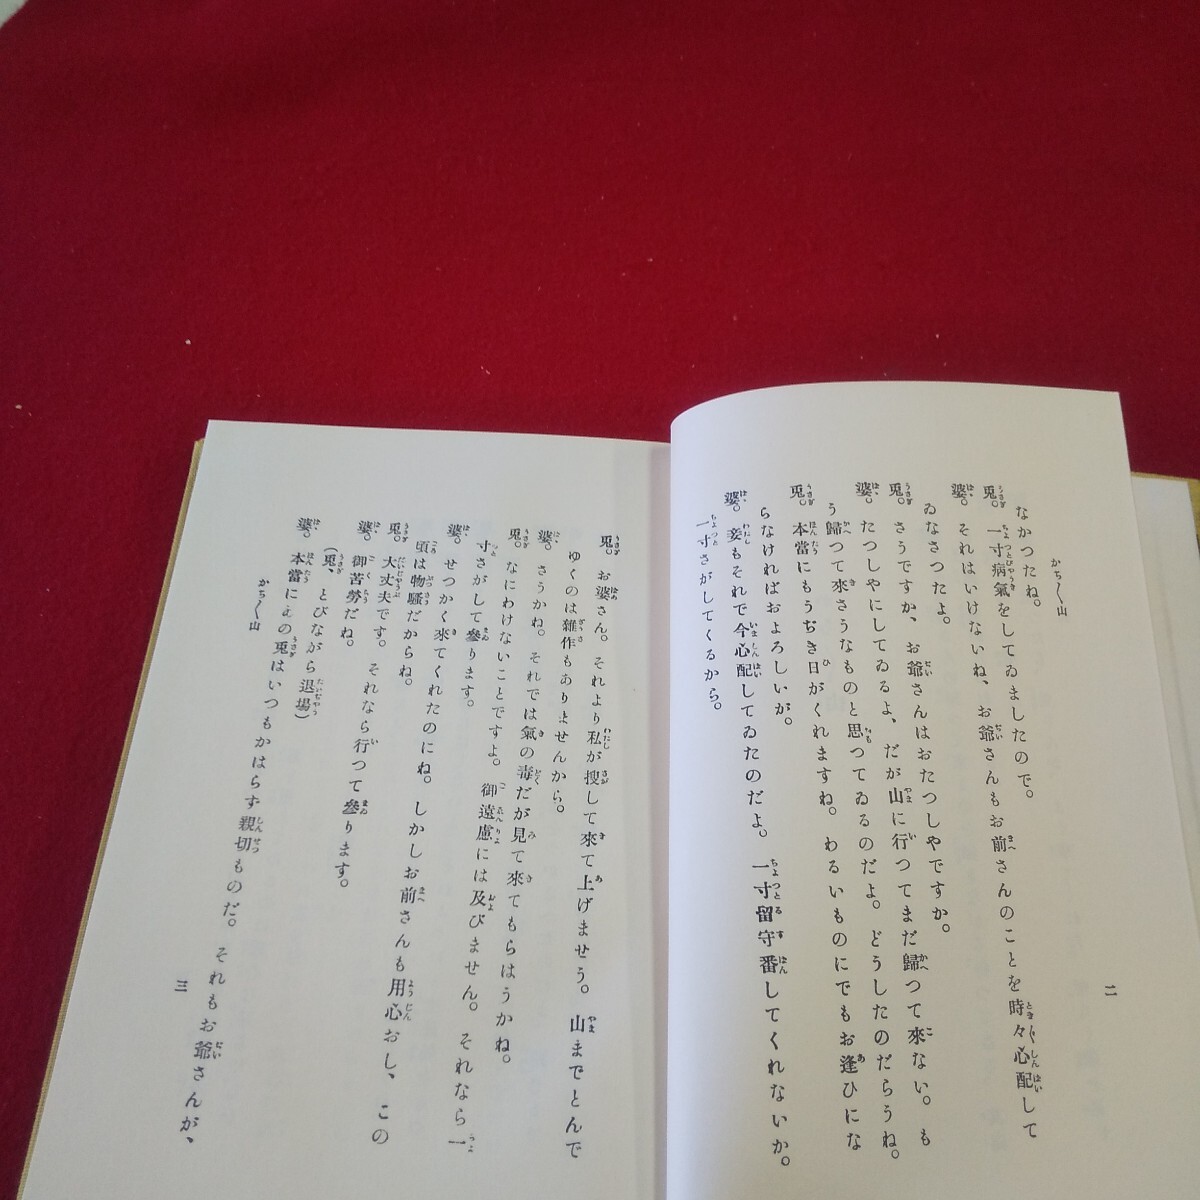 かち〱山
二
なかつたね。
兎。一寸病氣をしてゐましたので。
婆。それはいけないね、お爺さんもお前さんのことを時々心配して
ゐなさつたよ。
兎。さうですか、お爺さんはおたつしやですか。
婆。たつしやにしてゐるよ、だが山に行つてまだ歸つて來ない。も
う歸つて來さうなものと思つてゐるのだよ。どうしたのだらうね。
兎。本當にもうぢき日がくれますね。わるいものにでもお逢ひにな
らなければおよろしいが。
婆。妾もそれで今心配してゐたのだよ。一寸留守番してくれないか。
一寸さがしてくるから。
兎。お婆さん。それより私が搜して來て上げませう。山までとんで
ゆくのは雜作もありませんから。
婆。さうかね。それでは氣の毒だが見て來てもらはうかね。
兎。なにわけないことですよ。御遠慮には及びません。それなら一
寸さがして參ります。
婆。せつかく來てくれたのにね。しかしお前さんも用心おし、この
頃は物騷だからね。
兎。大丈夫です。それなら行つて參ります。
婆。御苦勞だね。
(兎、とびながら退場)
婆。本當にあの兎はいつもかはらず親切ものだ。それもお爺さんが、
かち〱山
三